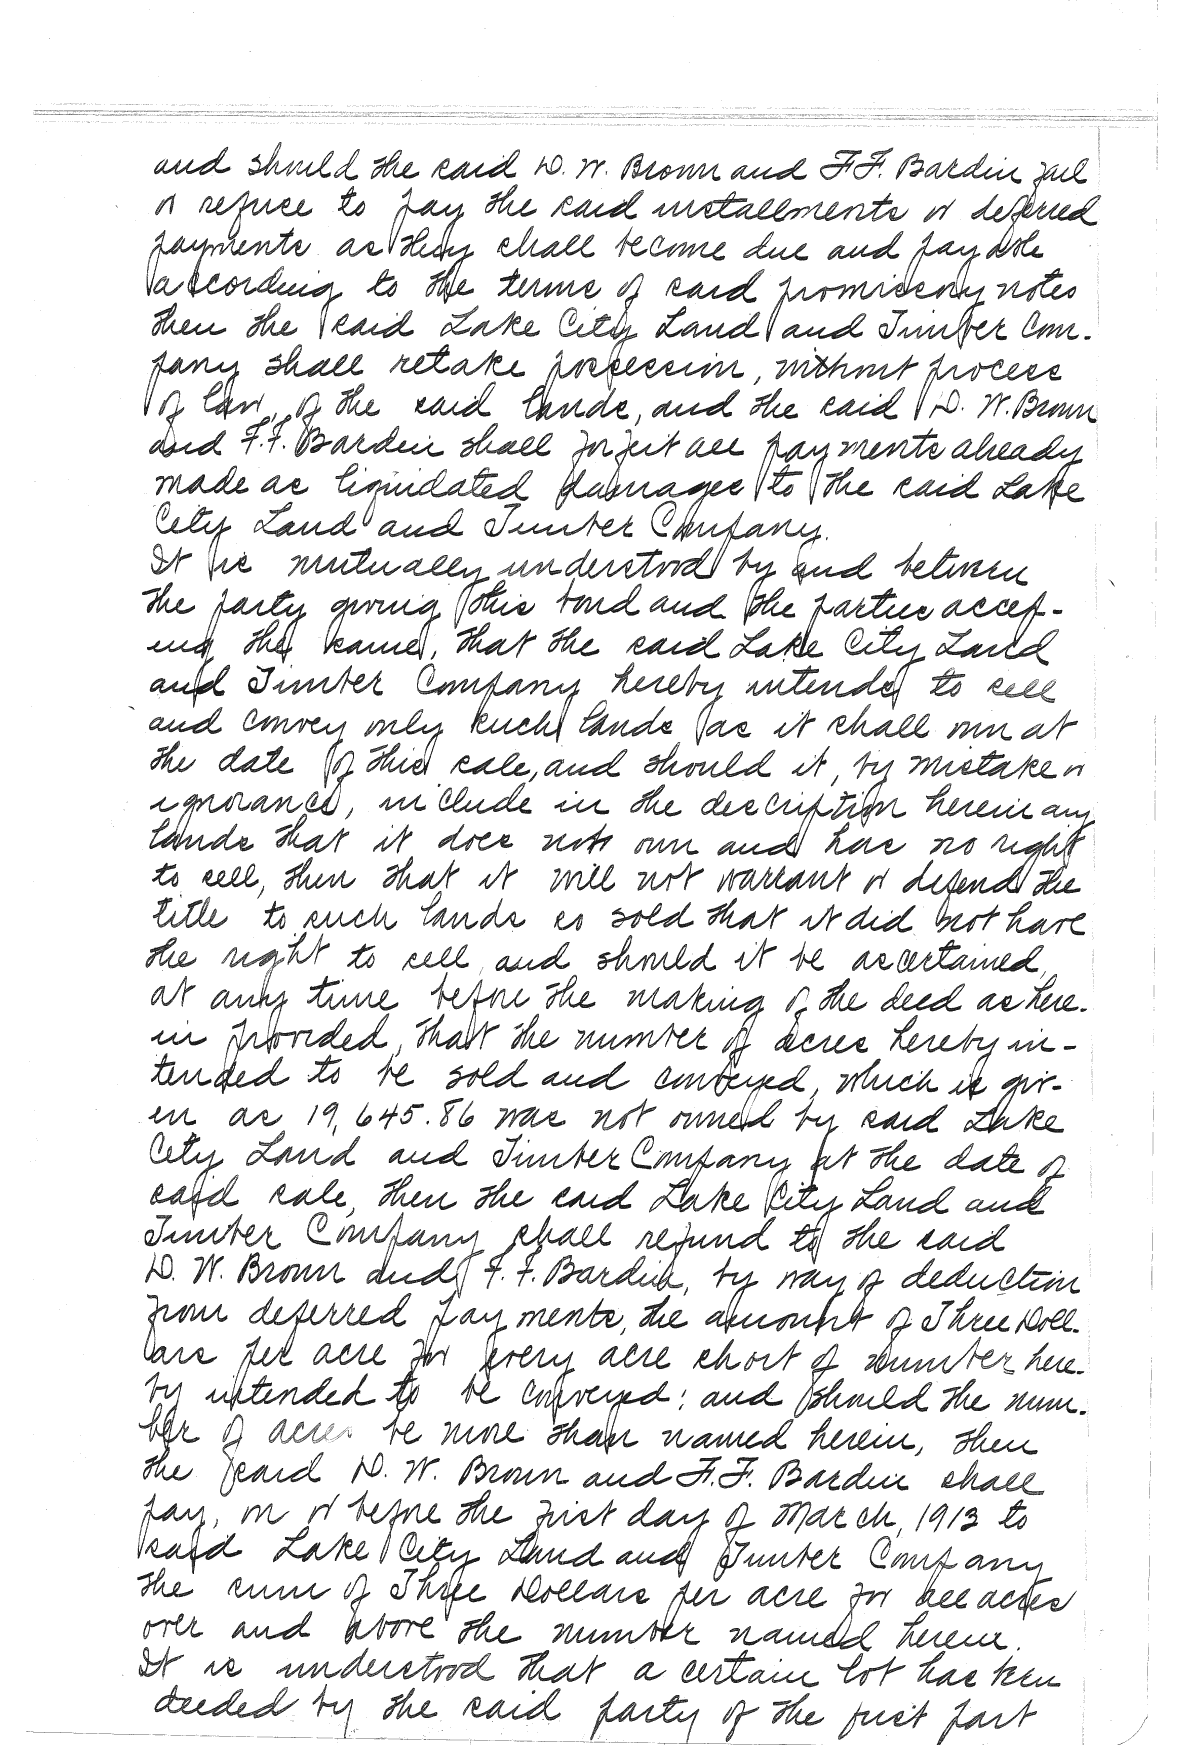 and should the said D. W. Brown and F.F. Bardin fail
or refuse to pay the said installments or deferred
payments as they shall become due and payable
according to the terms of said promissory notes
then the said Lake City Land and Timber Com-
pany shall retake possession, without process
of law, of the said lands, and the said D. W. Brown
and F.F. Bardin shall forfeit all payments already
made as liquidated damages to the said Lake
City Land and Timber Company.
It is mutually understood by and between
the party giving this bond and the parties accep-
ing the same, that the said Lake City Land
and Timber Company hereby intends to sell
and convey only such lands as it shall own at
the date of this sale, and should it, by mistake or
ignorance, include in the description herein any
lands that it does not own and has no right
to sell, then that it will not warrant or defend the
title to such lands so sold that it did not have
the right to sell, and should it be ascertained,
at any time before the making of the deed as here-
in provided, that the number of acres hereby in-
tended to be sold and conveyed, which is giv-
en as 19,645.86 was not owned by said Lake
City Land and Timber Company at the date of
said sale, then the said Lake City Land and
Timber Company shall refund to the said
D. W. Brown and F. F. Bardin, by way of deduction
from deferred payments, the amount of Three Doll-
ars per acre for every acre short of number here-
by intended to be conveyed; and should the num-
ber of acres be more than named herein, then
the said D. W. Brown and F.F. Bardin shall
pay, on or before the first day of March, 1913 to
said Lake City Land and Timber Company
the sum of Three Dollars per acre for all acres
over and above the number named herein.
It is understood that a certain lot has been
deeded by the said party of the first part